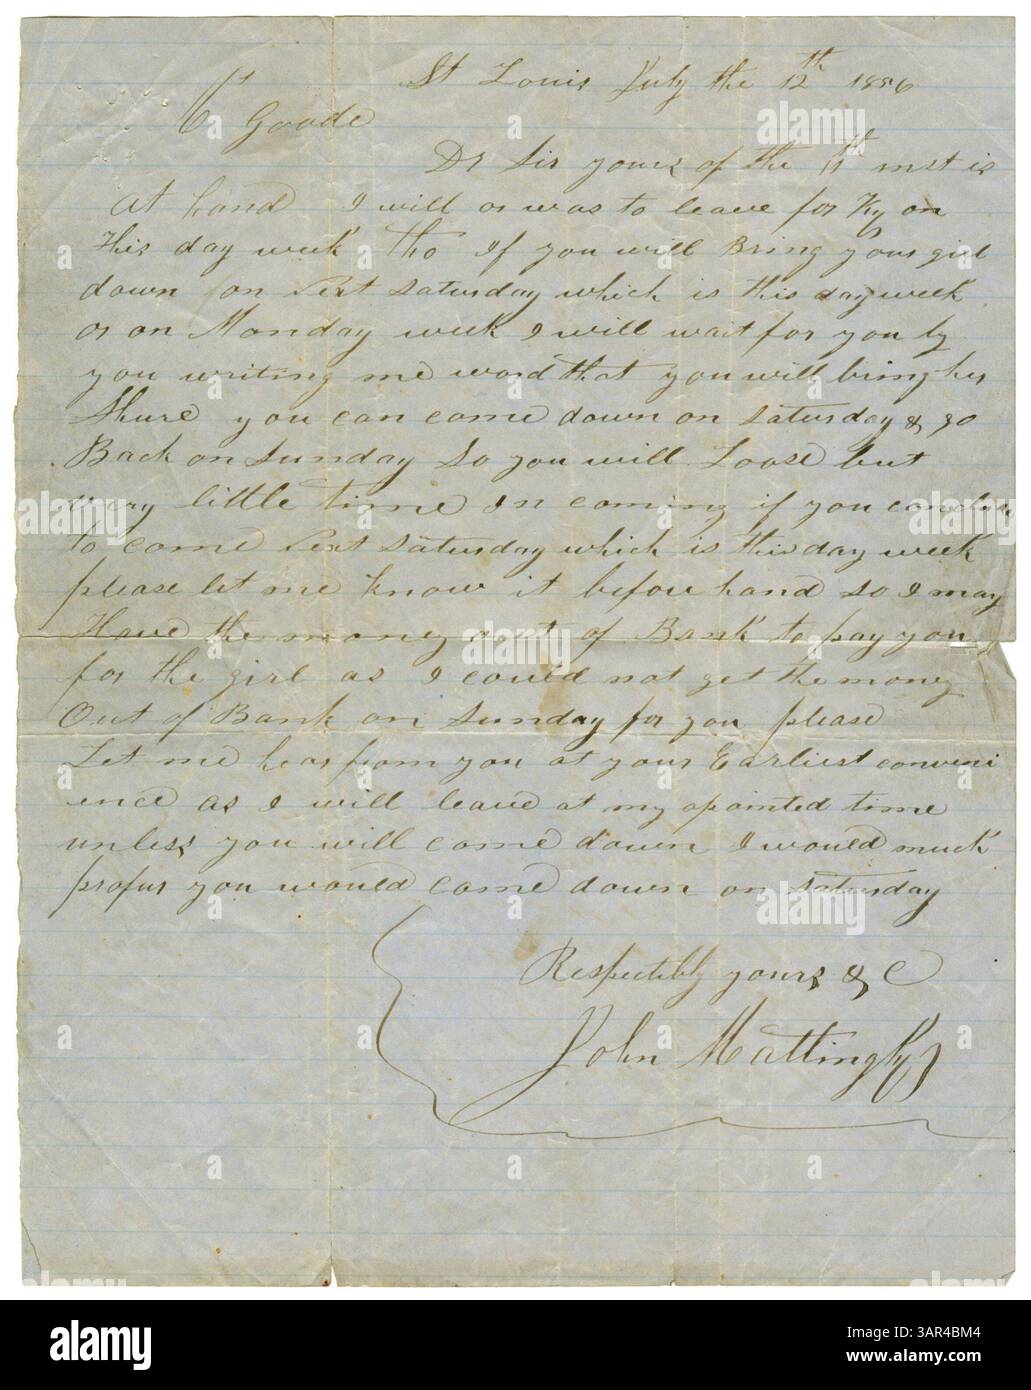 St Louis July the 12th 1856
G Goode
Dr Sir yours of the 11th inst is
at hand I will or was to leave for Ky on
this day week tho If you will Bring your girl
down on Next Saturday which is this day week
or on Monday week I will wait for you by
you writing me word that you will bring her
Shure you can come down on Saturday & go
Back on Sunday So you will Loose but
very little time In coming if you conclude
to come Next Saturday which is this day week
please let me know it before hand so I may
Have the money out of Bank to pay you
for the girl as I could not get the money
Out of Bank on Sunday for you please
Let me hear from you at your Earliest conveni
ence as I will leave at my apointed time
unless you will come down I would much
profur you would come down on Saturday
Respectibly yours & C
John Mattingly
alamy
a
alamy
Image ID: 3AR4BM4
www.alamy.com